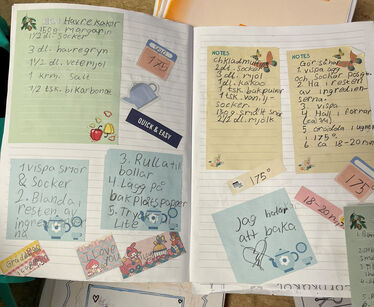 Havrekakor
150g margarin
1/2 dl. socker
3 dl. havregryn
1 1/2 dl. vetemjöl
1 krm. salt
1/2 tsk. bikarbonat
175°
QUICK & EASY
1 vispa smör
& Socker
2. Blanda i
resten av
3. Rulla till
bollar
4. Lägg på
bakplåtspapper
5. Try
Lite
I Love
You
NOTES
2 dl. socker
3 dl. mjöl
1 dl. kakao
1 tsk. bakpulver
1 tsk. vanilj-
socker
150g smält smör
2 1/2 dl. mjölk
175°
NOTES
Gör såhär
1. vispa ägg
och socker pösigt
2. Ha i resten
av ingredien-
serna.
3. vispa
4 Häll i formar
i 175°
6. ca 18-20 min
175°
18-20 min
Jag hatar
att baka